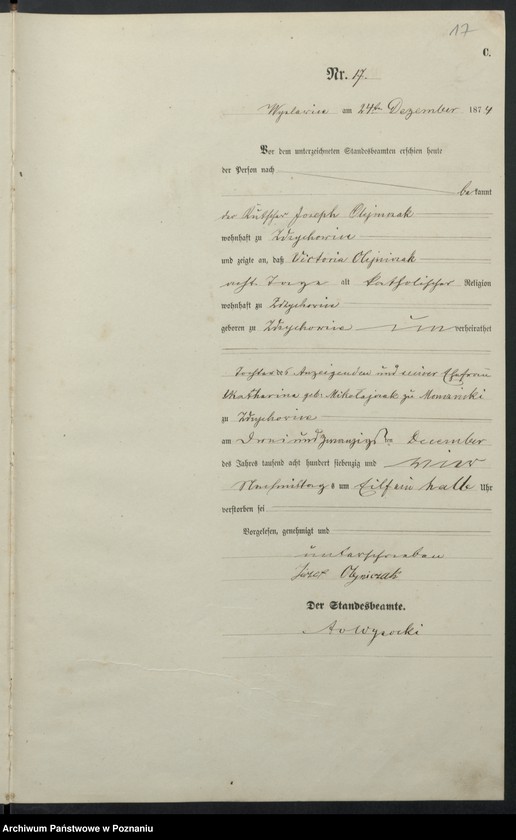 17
C.
Nr. 17.
am 24ten Dezember 1874
Vor dem unterzeichneten Standesbeamten erschien heute
der Person nach
bekannt
der Kutscher Joseph Olejniczak
wohnhaft zu Zdzychowice
und zeigte an, daß Victoria Olejniczak
acht Tage alt katholischer Religion
wohnhaft zu Zdzychowice
geboren zu Zdzychowice unverheirathet
Tochter des Anzeigenden und seiner Ehefrau
Katharina geb: Mikołajczak zu
zu Zdzychowice
am Drei und zwanzigsten December
des Jahres tausend acht hundert siebenzig und vier
Nachmittags um Eilf ein halb Uhr
verstorben sei
Vorgelesen, genehmigt und
unterschrieben
Jozef Olejniczak
Der Standesbeamte.
Wysocki
Archiwum Państwowe w Poznaniu